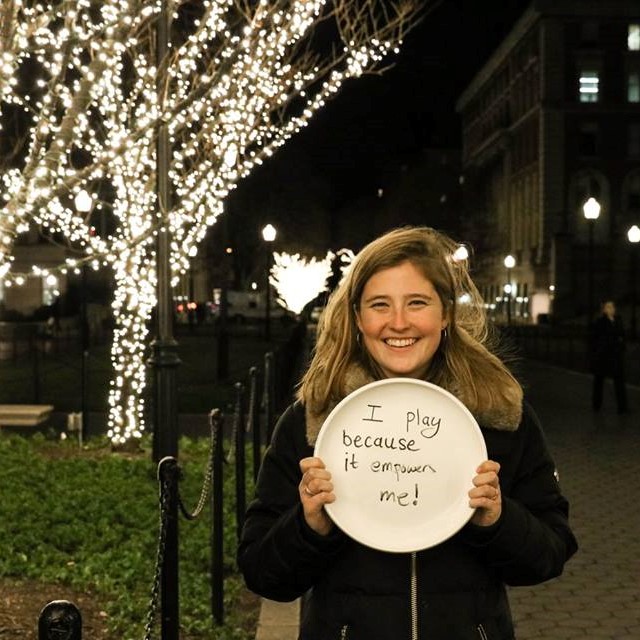 I play
because
it empowers
me!